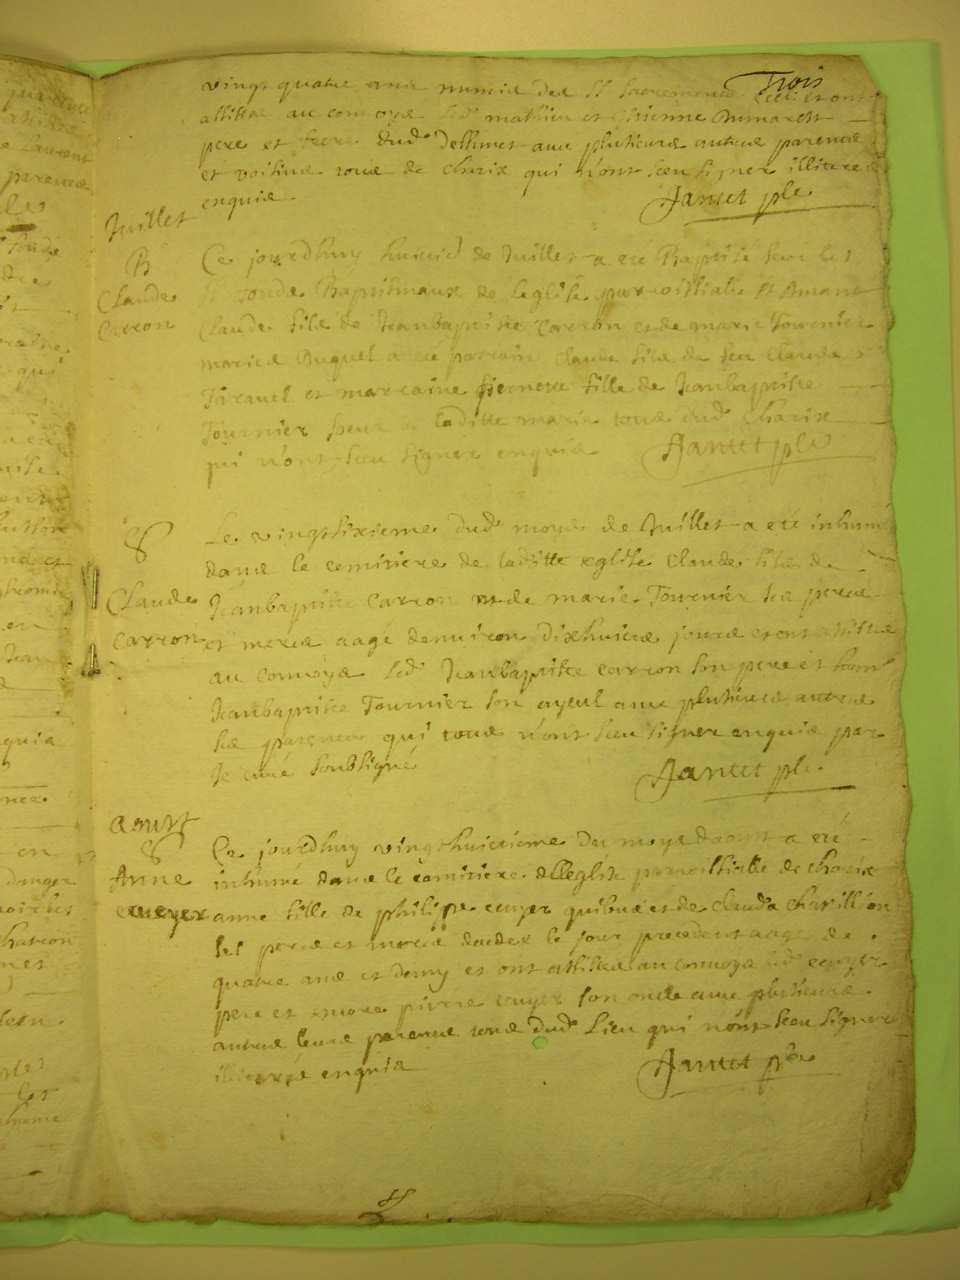 Trois
vingt quatre ans munie des St Sacrements et ont
assistes au convoye led mathieu et Estienne
pere et frere dud deffunct avec plusieurs autres parents
et voisins tous de charix qui n'ont sceu signer illiteres
enquis. Jantet ptre
Juillet
B
Claude
Carron
Ce jourdhuy huitie de Juillet a eté Baptisé sur les
St fonds Baptismaux de leglise parroissialle St Amant
Claude fils de Jeanbaptiste Carron et de marie Tournier
mariés duquel a eté parrain Claude fils de feu Claude
Tiravel et marraine pierrette fille de Jeanbaptiste
Tournier soeur de laditte marie tous dud Charix
qui n'ont sceu signer enquis. Jantet ptre
S
Claude
Carron
Le vingtsixieme dud moys de Juillet a eté inhumé
dans le cemitiere de laditte eglise Claude fils de
Jeanbaptiste Carron et de marie Tournier ses peres
et meres aagé denviron dixhuict jours et ont assistes
au convoye led Jeanbaptiste carron son pere et hon
Jeanbaptiste Tournier son ayeul avec plusieurs autres
ses parents qui tous n'ont sceu signer enquis par
Je curé soubsigné Jantet ptre
aoust
S
Anne
cuuyer
Ce jourdhuy vingthuictieme du moys daoust a eté
inhumé dans le cemitiere de leglise parroissialle de charix
anne fille de philippe cuuyer quibus et de clauda chatillon
les peres et meres decedee le jour precedent aage de
quatre ans et demy et ont assistes au convoye led cuuyer
pere et encore pierre cuuyer son oncle avec plusieurs
autres leurs parents tous dud Lieu qui n'ont sceu signer
illiteres enquis Jantet ptre